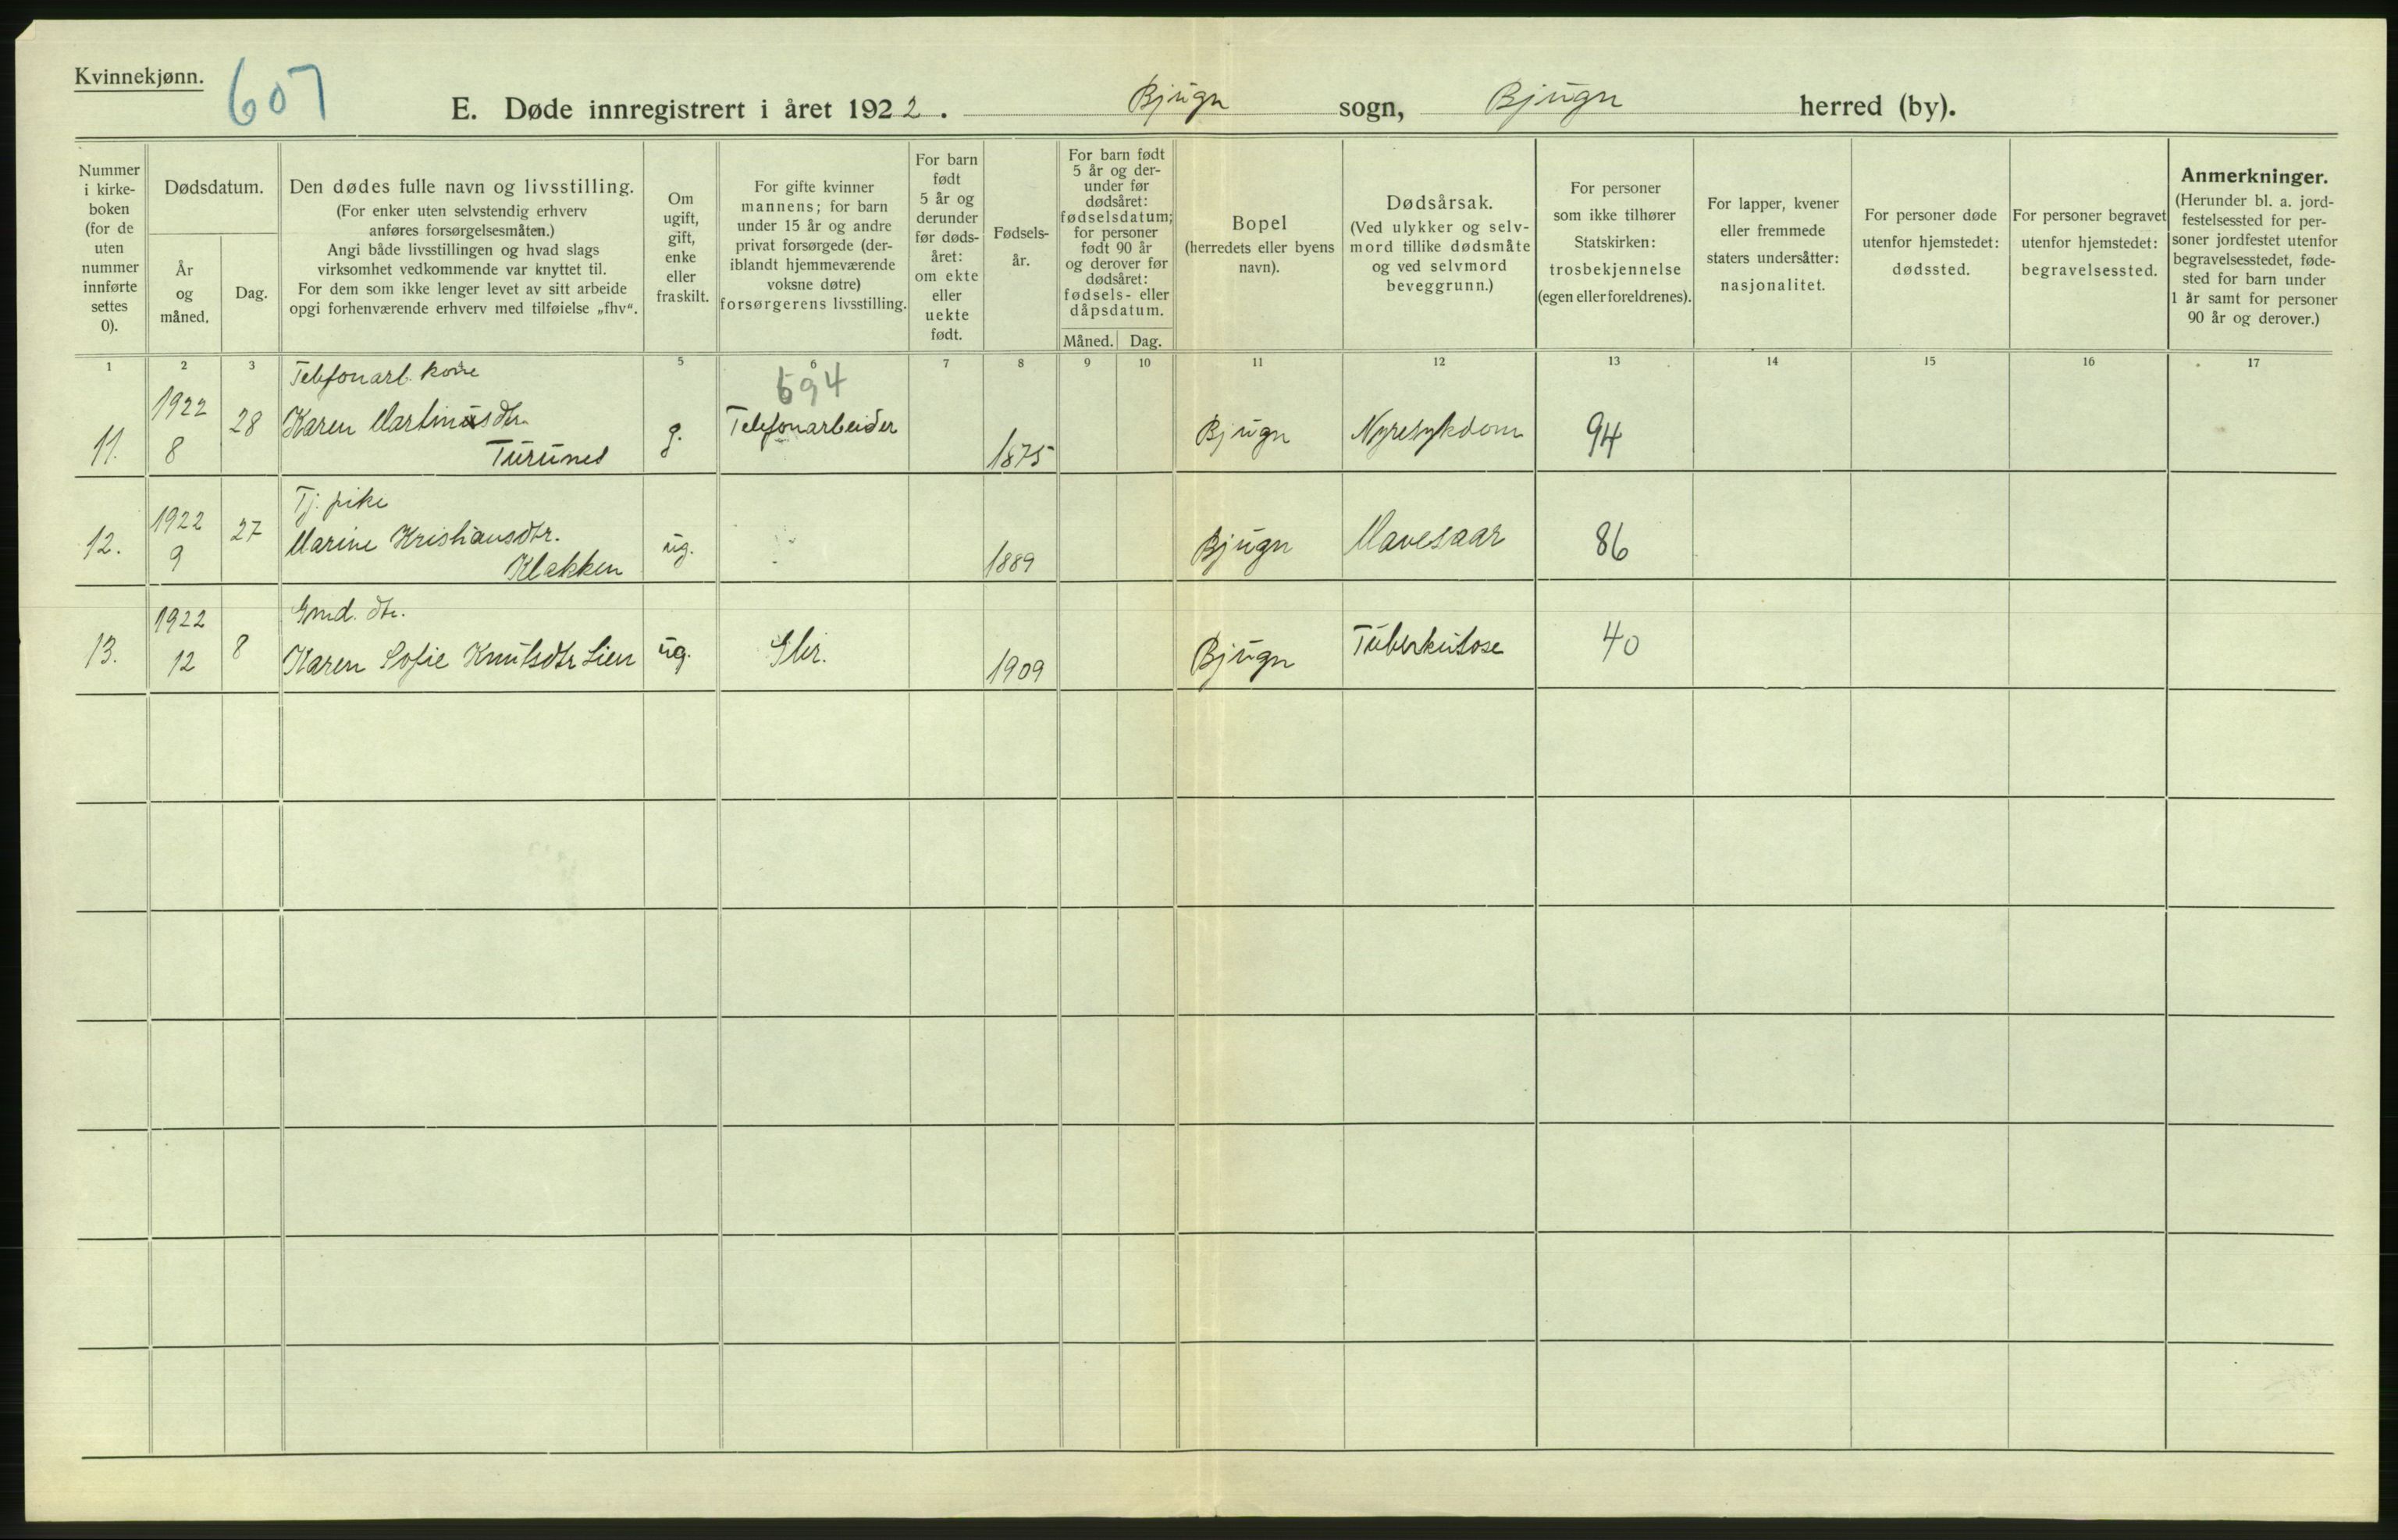 Kvinnekjønn.
607
E. Døde innregistrert i året 1922. Bjugn sogn, Bjugn herred (by).
Nummer
i kirke-
boken
(for de
uten
nummer
innførte
settes
0).
Dødsdatum.
År
og
måned.
Dag.
Den dødes fulle navn og livsstilling.
(For enker uten selvstendig erhverv
anføres forsørgelsesmåten.)
Angi både livsstillingen og hvad slags
virksomhet vedkommende var knyttet til.
For dem som ikke lenger levet av sitt arbeide
opgi forhenværende erhverv med tilføielse „fhv“.
Om
ugift,
gift,
enke
eller
fraskilt.
For gifte kvinner
mannens; for barn
under 15 år og andre
privat forsørgede (der-
iblandt hjemmeværende
voksne døtre)
forsørgerens livsstilling.
For barn
født
5 år og
derunder
før døds-
året:
om ekte
eller
uekte
født.
Fødsels-
år.
For barn født
5 år og der-
under før
dødsåret:
fødselsdatum;
for personer
født 90 år
og derover før
dødsåret:
fødsels- eller
dåpsdatum.
Måned. Dag.
Bopel
(herredets eller byens
navn).
Dødsårsak.
(Ved ulykker og selv-
mord tillike dødsmåte
og ved selvmord
beveggrunn.)
For personer
som ikke tilhører
Statskirken:
trosbekjennelse
(egen eller foreldrenes).
For lapper, kvener
eller fremmede
staters undersåtter:
nasjonalitet.
For personer døde
utenfor hjemstedet:
dødssted.
For personer begravet
utenfor hjemstedet:
begravelsessted.
Anmerkninger.
(Herunder bl. a. jord-
festelsessted for per-
soner jordfestet utenfor
begravelsesstedet, føde-
sted for barn under
1 år samt for personer
90 år og derover.)
1 2 3 5 6 7 8 9 10 11 12 13 14 15 16 17
Telefonarb. kone
694
11. 1922 8 28 Karen Martinusdtr. g. Telefonarbeider 1875 Bjugn Nyresykdom 94
Turunes
Tj. pike
12. 1922 9 27 Marine Kristiansdtr. ug. 1889 Bjugn Mavesaar 86
Klakken
Gmd. dtr.
13. 1922 12 8 Karen Sofie Knutsdtr Lien ug. Gbr. 1909 Bjugn Tuberkulose 40